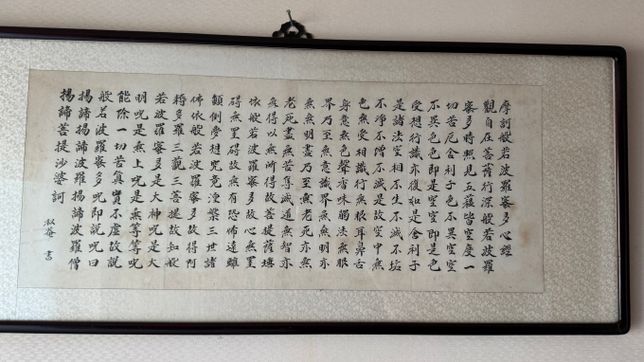 摩訶般若波羅蜜多心經
觀自在菩薩行深般若波羅
蜜多時照見五蘊皆空度一
切苦厄舍利子色不異空空
不異色色即是空空即是色
受想行識亦復如是舍利子
是諸法空相不生不滅不垢
不淨不增不減是故空中無
色無受想行識無眼耳鼻舌
身意無色聲香味觸法無眼
界乃至無意識界無無明亦
無無明盡乃至無老死亦無
老死盡無苦集滅道無智亦
無得以無所得故菩提薩埵
依般若波羅蜜多故心無罣
礙無罣礙故無有恐怖遠離
顛倒夢想究竟涅槃三世諸
佛依般若波羅蜜多故得阿
耨多羅三藐三菩提故知般
若波羅蜜多是大神呪是大
明呪是無上呪是無等等呪
能除一切苦真實不虛故說
般若波羅蜜多呪即說呪曰
揭諦揭諦波羅揭諦波羅僧
揭諦菩提沙婆訶
書